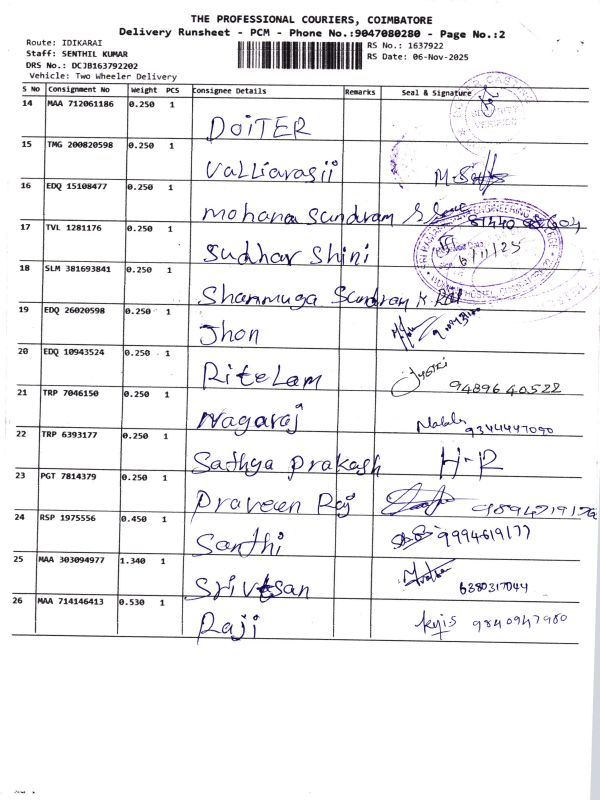 THE PROFESSIONAL COURIERS, COIMBATORE
Delivery Runsheet - PCM - Phone No.:9047080280 - Page No.:2
Route: IDIKARAI
RS No.: 1637922
Staff: SENTHIL KUMAR
RS Date: 06-Nov-2025
DRS No.: DCJB163792202
Vehicle: Two Wheeler Delivery
S No Consignment No Weight PCS Consignee Details Remarks Seal & Signature
14 MAA 712061186 0.250 1 DOITER
15 TMG 200820598 0.250 1 Valliarasii
16 EDQ 15108477 0.250 1 Mohana Sundram
17 TVL 1281176 0.250 1 Sudhar Shini 6/11/25
18 SLM 381693841 0.250 1 Shanmuga Sundram
19 EDQ 26020598 0.250 1 Jhon
20 EDQ 10943524 0.250 1 Ritelam Jyothi 9489640522
21 TRP 7046150 0.250 1 Nagaraj 9344447090
22 TRP 6393177 0.250 1 Sathya Prakash H-R
23 PGT 7814379 0.250 1 Praveen Raj
24 RSP 1975556 0.450 1 Santhi 9994619177
25 MAA 303094977 1.340 1 Srivatsan 6380317044
26 MAA 714146413 0.530 1 Raji 9840947980